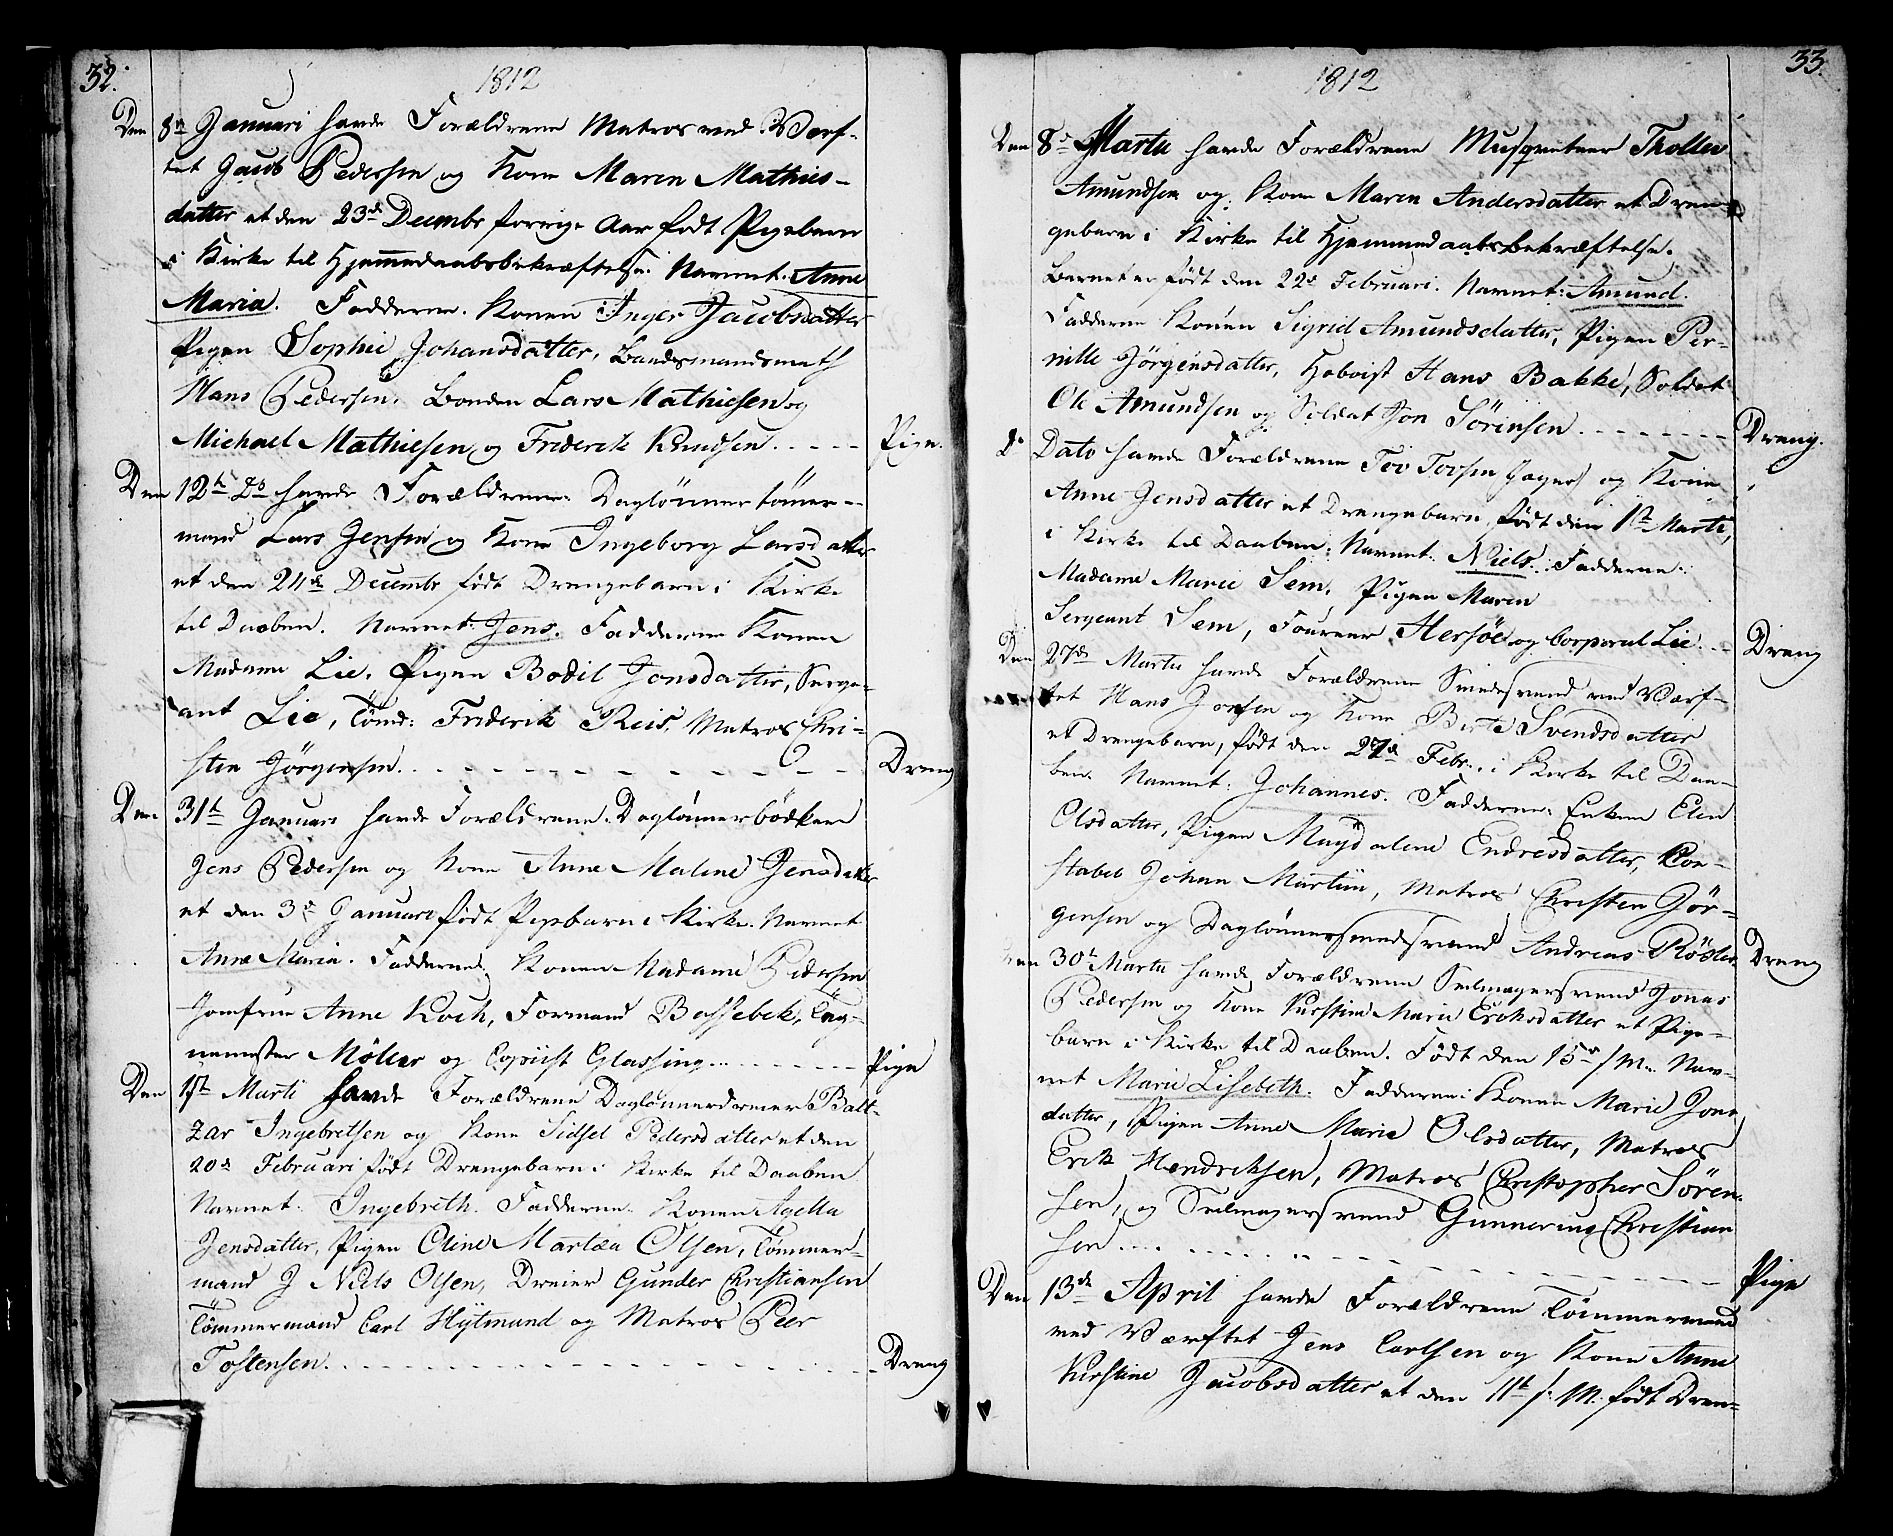 32.
1812
Den 8de Januari havde Forældrene Matros ved Værf-
tet Jacob Pedersen og Kone Maren Mathies-
datter et den 23de Decembr forrige Aar født Pigebarn
i Kirke til Hjemmedaabsbekræftelse. Navnet: Anne
Maria. Fadderne. Konen Inger Jacobsdatter
Pigen Sophie Johansdatter, Baadsmandsmath
Hans Pedersen. Bonden Lars Mathiesen og
Michael Mathiesen og Friderik Knudsen. Pige.
Den 12te Do havde Forældrene Daglønnertømer-
mand Lars Jensen og Kone Ingeborg Larsdatter
et den 24de Decembr født Drengebarn i Kirke
til Daaben. Navnet: Jens. Fadderne Konen
Madame Lie. Pigen Bodil Jonsdatter, Serge-
ant Lie, Tømd: Friderik Reis, Matros Chri-
sten Jörgensen. Dreng
Den 31te Januari havde Forældrene Daglønnerbødker
Jens Pedersen og Kone Anne Malene Jensdatter
et den 3de Januari født Pigebarn i Kirke. Navnet
Anne Maria. Fadderne: Konen Madame Pedersen
Jomfrue Anne Koch, Formand Bossebek, Tøg-
nemester Möller og Copiist Glassing. Pige
Den 1ste Marti havde Forældrene Daglønnerdreier Balt-
zar Ingebretsen og Kone Sidsel Pedersdatter et den
20de Februari født Drengebarn i Kirke til Daaben
Navnet: Ingebreth. Fadderne: Konen Agetta
Jensdatter, Pigen Oline Martæa Olsen, Tömmer-
mand J Niels Olsen, Dreier Gunder Christiansen
Tömmermand Carl Hytmund og Matros Peer
Tostensen. Dreng
33.
1812
Den 8de Martii havde Forældrene Musqueteer Thollev
Amundsen og Kone Maren Andersdatter et Dren-
gebarn i Kirke til Hjemmedaabsbekræftelse.
Barnet er født den 22de Februari. Navnet: Amund.
Fadderne Konen Sigrid Amundsdatter, Pigen Per-
nille Jörgensdatter, Hoboist Hans Bakke, Soldat
Ole Amundsen og Soldat Jon Sörensen. Dreng.
do Dato havde Forældrene Tov Tovsen Jager og Kone
Anne Jensdatter et Drengebarn, født den 1ste Martii,
i Kirke til Daaben: Navnet: Niels. Fadderne:
Madame Marie Sem, Pigen Maren
Sergeant Sem, Foureer Hersöe og Corporal Lie. Dreng
Den 27de Martii havde Forældrene Smedsvend ved Værf-
tet Hans Jonsen og Kone Berte Svendsdatter
et Drengebarn, født den 27de Febr. i Kirke til Daa-
ben. Navnet: Johannes. Fadderne: Enken Elen
Olsdatter, Pigen Magdalene Endresdatter, Kon-
stabel Johan Martin, Matros Christen Jör-
gensen og Daglønnersmedsvend Andreas Röster Dreng
Den 30te Martii havde Forældrene Seilmagersvend Jonas
Pedersen og Kone Kirstine Marie Erichsdatter et Pige-
barn i Kirke til Daaben. Født den 15de f: M. Nav-
net Marie Lisebeth. Fadderne: Konen Marie Jons
datter, Pigen Anne Marie Olsdatter, Matros
Erik Hendriksen, Matros Christopher Sören-
sen, og Seilmagersvend Gunnerius Christian
sen. Pige
Den 13de April havde Forældrene Tömmermand
ved Værftet Jens Carlsen og Kone Anne
Kirstine Jacobsdatter et den 11te f: M. født Dren-